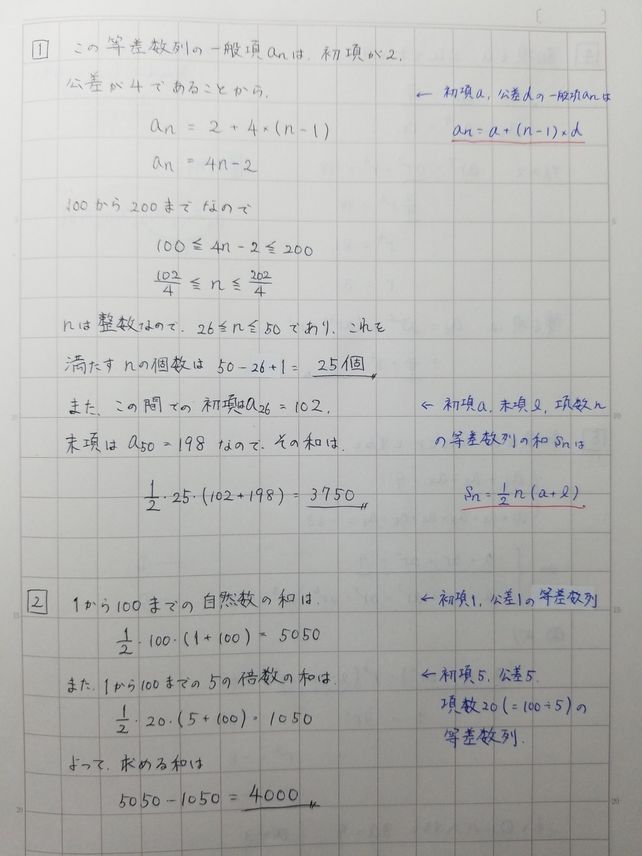 1 この等差数列の一般項anは、初項が2、
公差が4であることから、
← 初項a、公差dの一般項anは
an = 2 + 4×(n-1)
an = a+(n-1)×d
an = 4n-2
100から200までなので
100 ≦ 4n-2 ≦ 200
102/4 ≦ n ≦ 202/4
nは整数なので、26≦n≦50であり、これを
満たすnの個数は 50-26+1 = 25個
また、この間での初項はa26=102、
← 初項a、末項l、項数n
末項はa50=198なので、その和は、
の等差数列の和Snは
1/2・25・(102+198) = 3750
Sn=1/2n(a+l)
2 1から100までの自然数の和は、
← 初項1、公差1の等差数列
1/2・100・(1+100) = 5050
また、1から100までの5の倍数の和は、
← 初項5、公差5、
項数20(=100÷5)の
1/2・20・(5+100) = 1050
等差数列.
よって、求める和は
5050-1050 = 4000